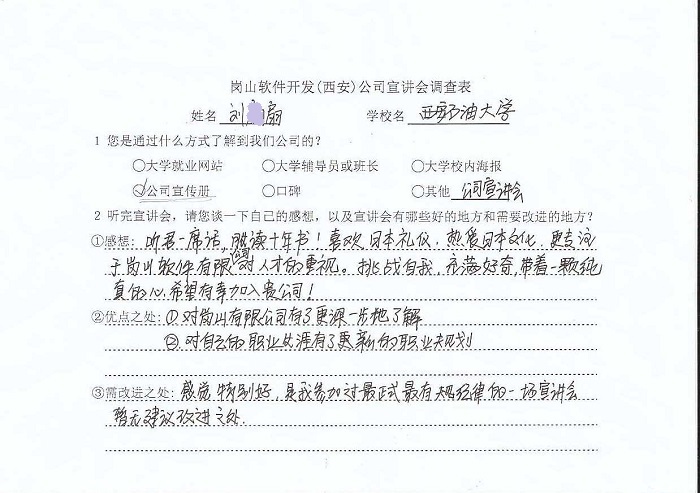 岗山软件开发(西安)公司宣讲会调查表
姓名 刘 扇 学校名 西安石油大学
1 您是通过什么方式了解到我们公司的?
○大学就业网站 ○大学辅导员或班长 ○大学校内海报
○公司宣传册 ○口碑 ○其他 公司宣讲会
2 听完宣讲会,请您谈一下自己的感想,以及宣讲会有哪些好的地方和需要改进的地方?
①感想: 听君一席话,胜读十年书!喜欢日本礼仪,热爱日本文化,更专注
于岗山软件有限公司对人才的重视。挑战自我,充满好奇,带着一颗纯
真的心,希望有幸加入贵公司!
②优点之处: ①对岗山有限公司有了更深一步地了解
②对自己的职业生涯有了更新的职业规划
③需改进之处: 感觉特别好,是我参加过最正式最有规律的一场宣讲会
暂无建议改进之处.